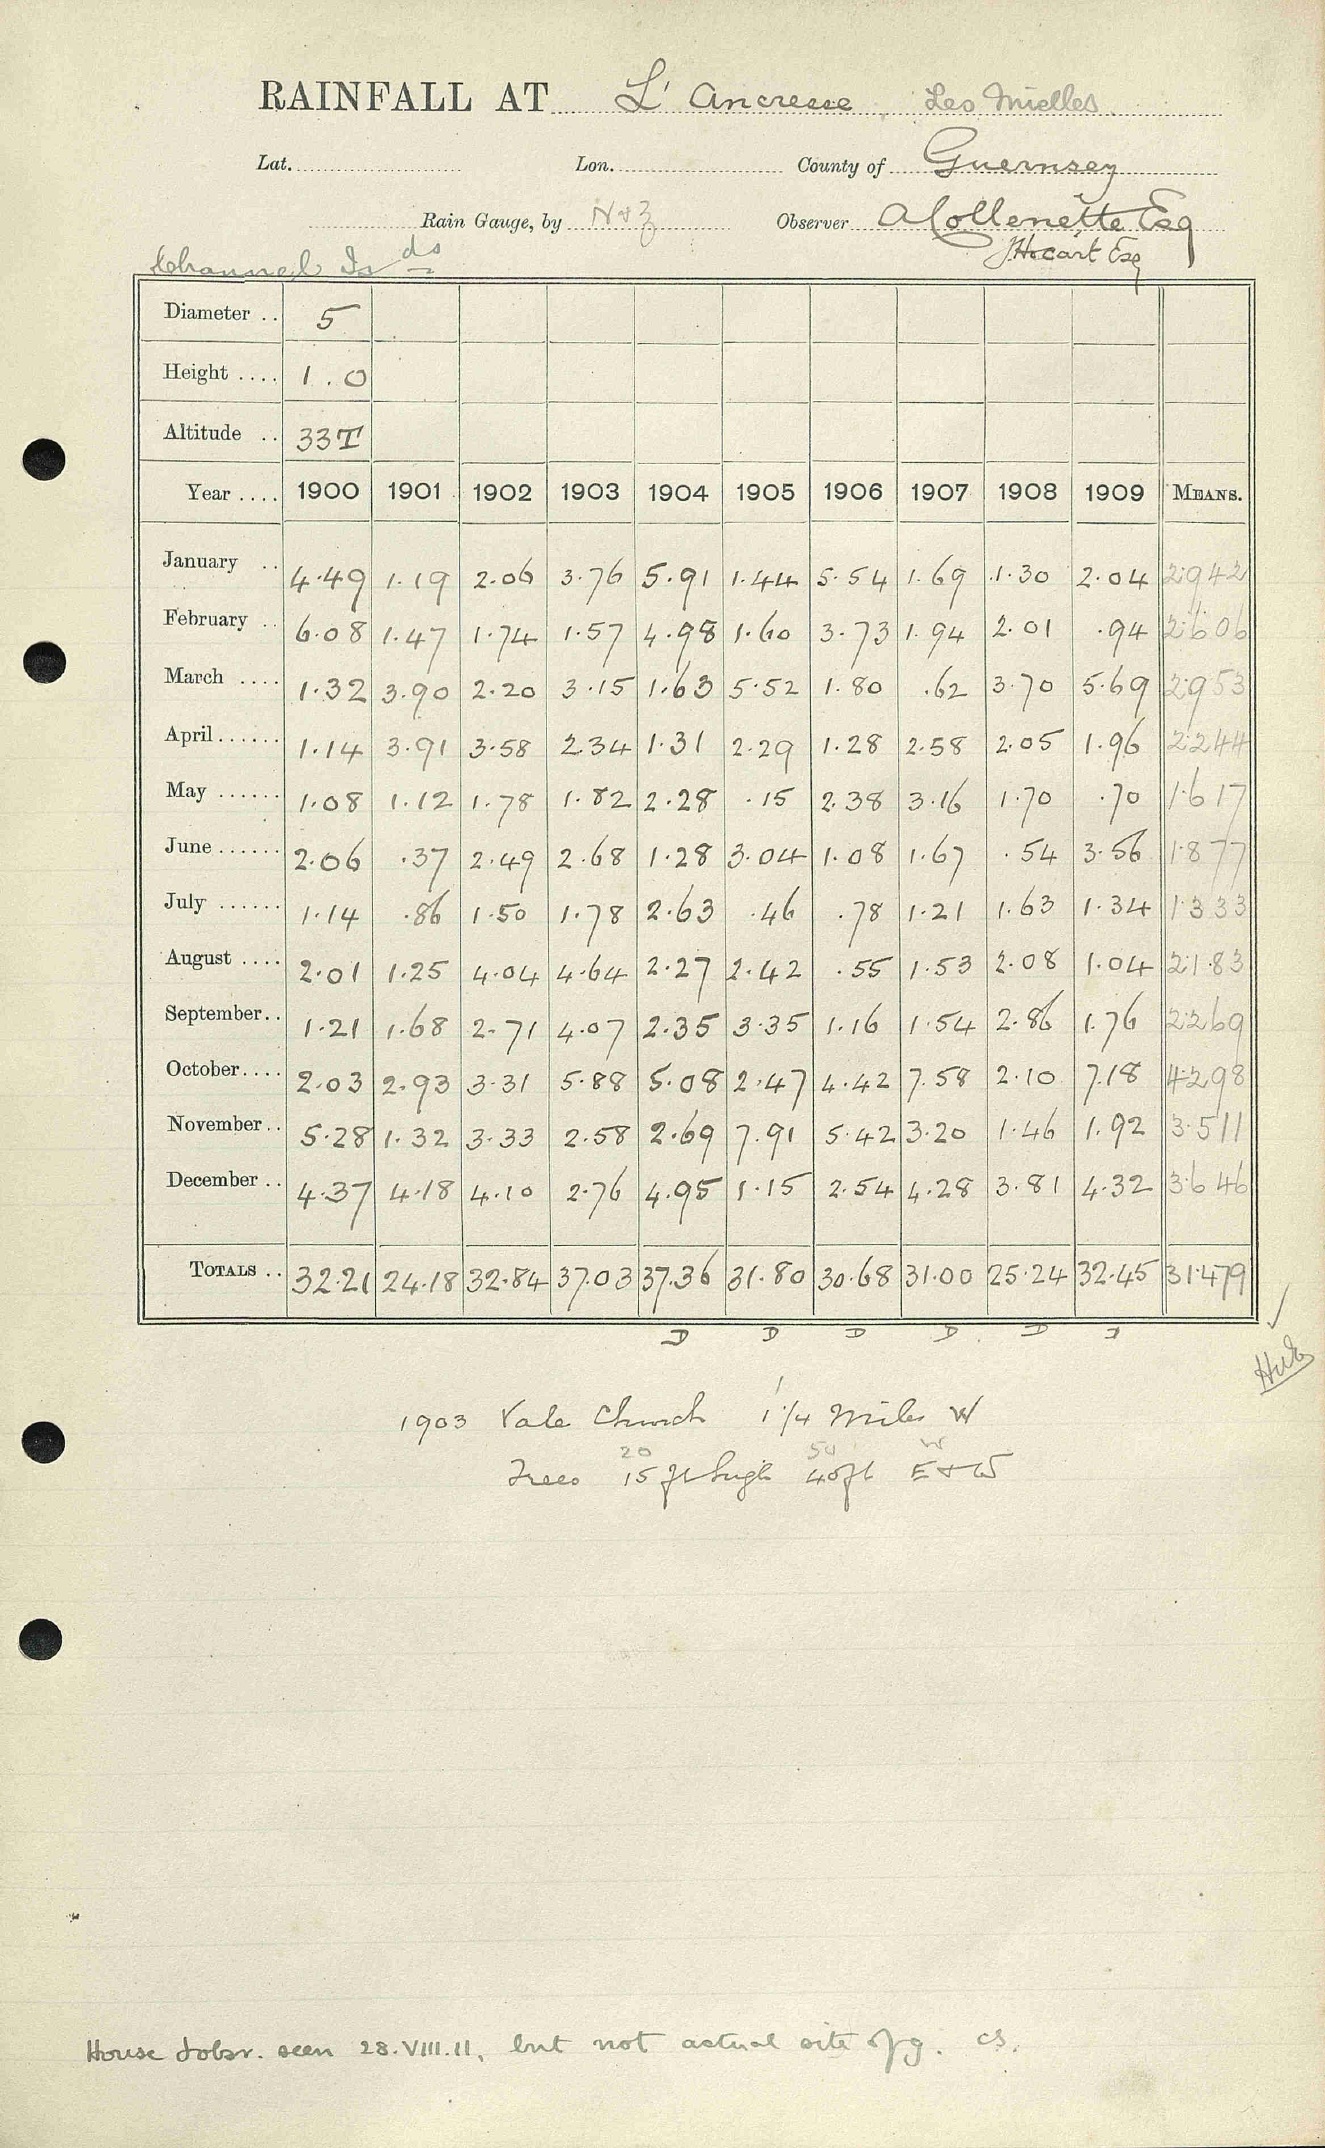 RAINFALL AT L' Ancresse, Les Mielles
Lat. Lon. County of Guernsey
Rain Gauge, by N & Z Observer A Collenette Esq
J Hocart Esq
Channel Is ds
Diameter .. 5
Height .... 1.0
Altitude .. 33T
Year .... 1900 1901 1902 1903 1904 1905 1906 1907 1908 1909 MEANS.
January .. 4.49 1.19 2.06 3.76 5.91 1.44 5.54 1.69 1.30 2.04 2.942
February .. 6.08 1.47 1.74 1.57 4.98 1.60 3.73 1.94 2.01 .94 2.606
March .... 1.32 3.90 2.20 3.15 1.63 5.52 1.80 .62 3.70 5.69 2.953
April...... 1.14 3.91 3.58 2.34 1.31 2.29 1.28 2.58 2.05 1.96 2.244
May ...... 1.08 1.12 1.78 1.82 2.28 .15 2.38 3.16 1.70 .70 1.617
June...... 2.06 .37 2.49 2.68 1.28 3.04 1.08 1.67 .54 3.56 1.877
July ...... 1.14 .86 1.50 1.78 2.63 .46 .78 1.21 1.63 1.34 1.333
August .... 2.01 1.25 4.04 4.64 2.27 2.42 .55 1.53 2.08 1.04 2.183
September.. 1.21 1.68 2.71 4.07 2.35 3.35 1.16 1.54 2.86 1.76 2.269
October.... 2.03 2.93 3.31 5.88 5.08 2.47 4.42 7.58 2.10 7.18 4.298
November.. 5.28 1.32 3.33 2.58 2.69 7.91 5.42 3.20 1.46 1.92 3.511
December .. 4.37 4.18 4.10 2.76 4.95 1.15 2.54 4.28 3.81 4.32 3.646
TOTALS .. 32.21 24.18 32.84 37.03 37.36 31.80 30.68 31.00 25.24 32.45 31.479
D D D D D D
1903 Vale Church 1 1/4 Miles W
20 50 W
Trees 15 ft high 40ft E & W
House & obsr. seen 28.VIII.11, but not actual site of g. CS.